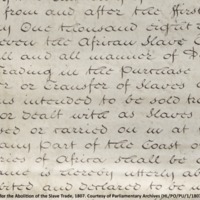 from and after the first
ay One thousand eight h
even the African Slave
ll and all manner of
Trading in the Purchase
r or Transfer of Slaves o
ns intended to be sold tra
or dealt with as Slaves
sed or carried on in at
any part of the Coast o
ries of Africa shall be a
ame is hereby utterly ab
bited and declared to be u
for the Abolition of the Slave Trade, 1807. Courtesy of Parliamentary Archives